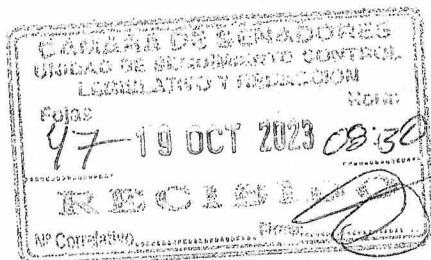 CAMARA DE SENADORES
UNIDAD DE SEGUIMIENTO CONTROL
LEGISLATIVO Y REDACCION
Fojas Hora:
47 19 OCT 2023 08:30
RECIBIDO
Nº Correlativo Firma